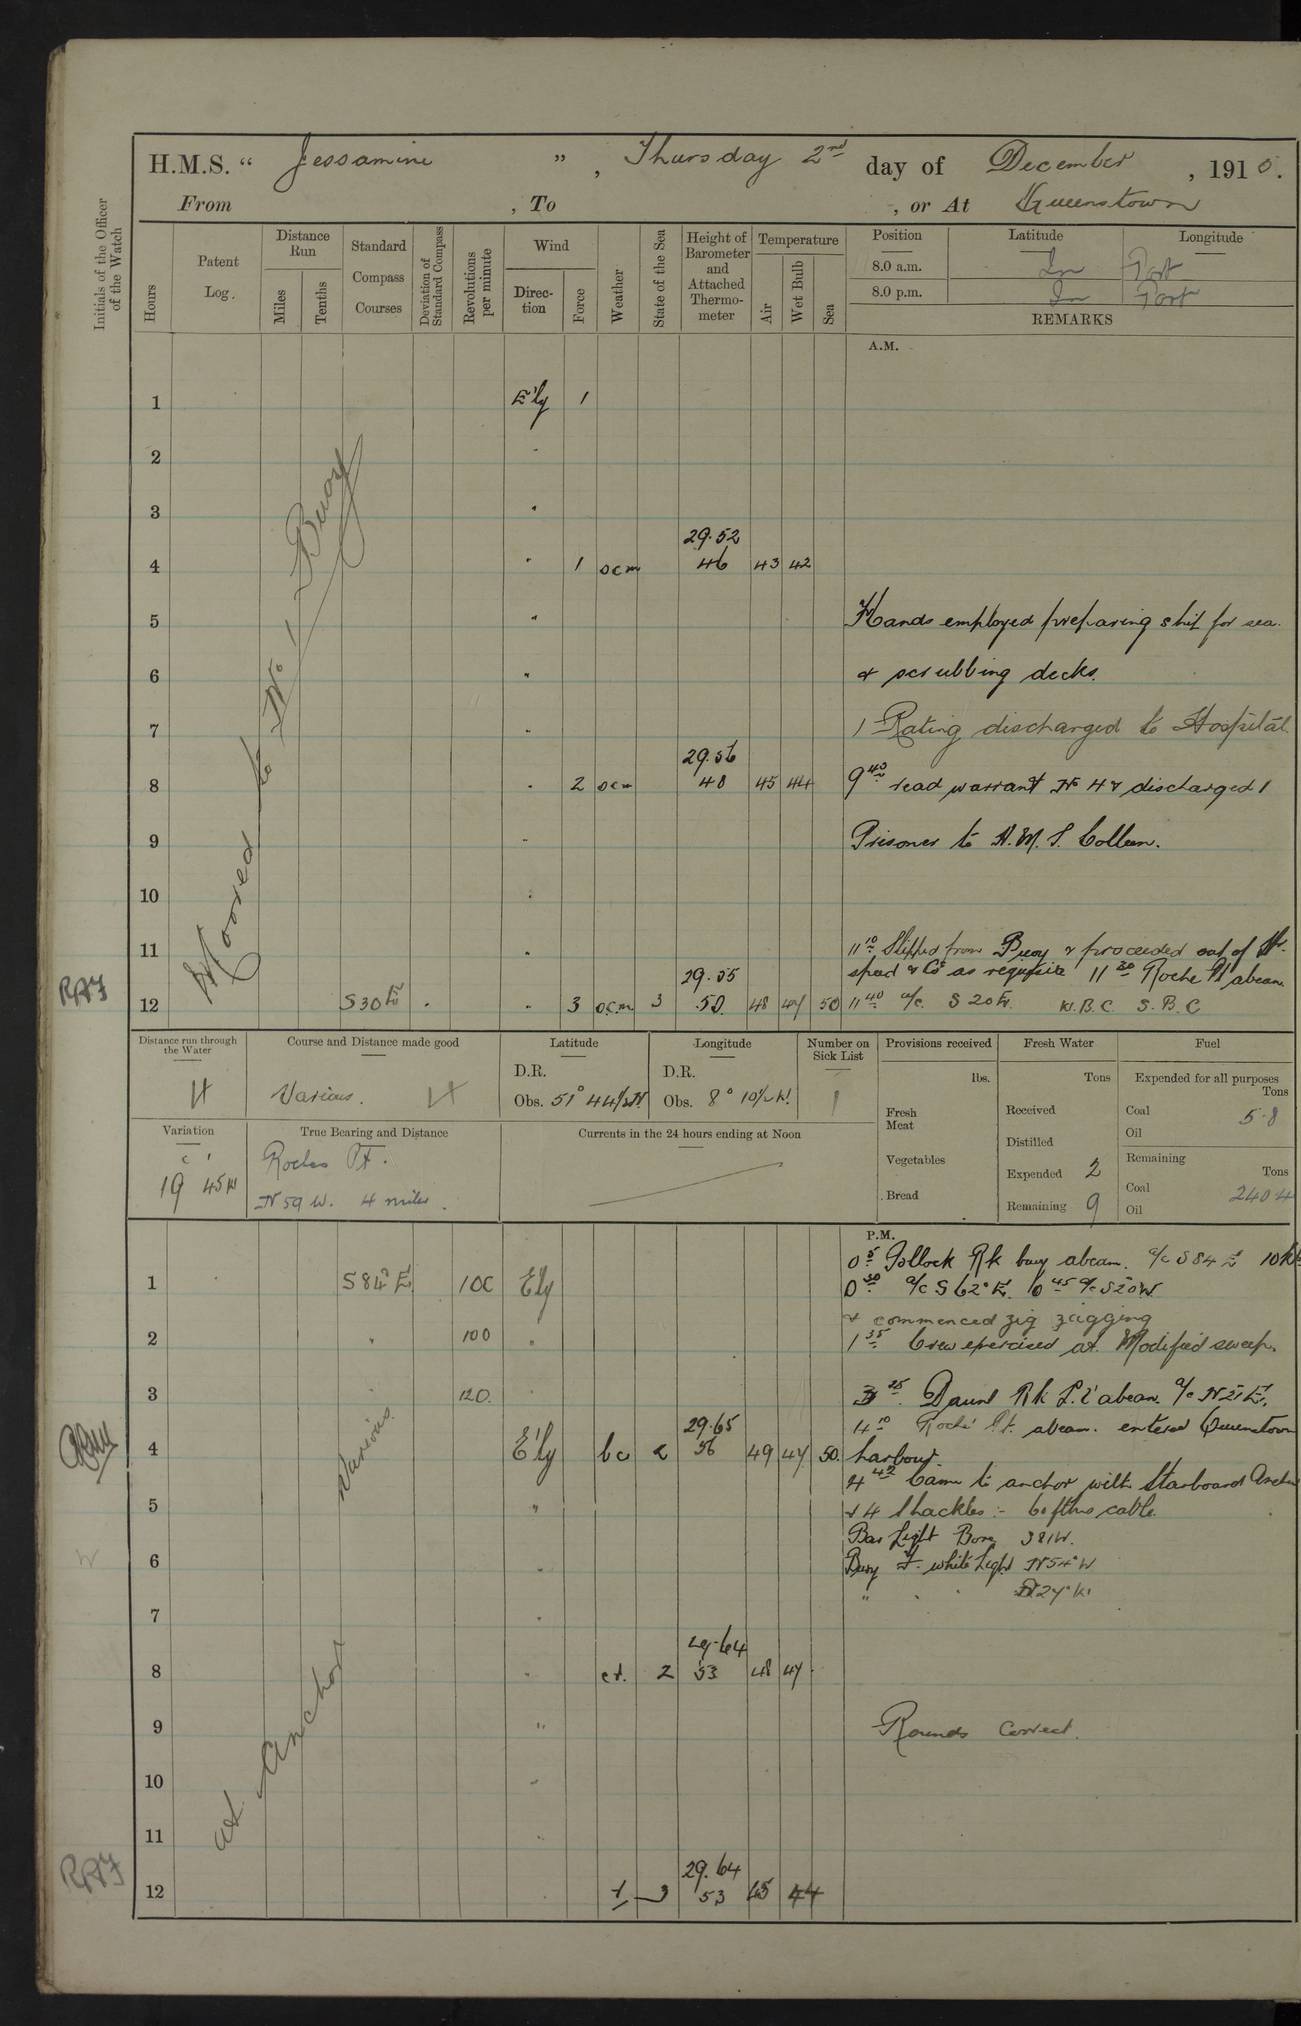 H.M.S. “ Jessamine ” , Thursday 2nd day of December , 1915.
From , To , or At Queenstown
Initials of the Officer of the Watch
Hours
Patent Log.
Distance Run
Miles
Tenths
Standard Compass Courses
Deviation of Standard Compass
Revolutions per minute
Wind
Direction
Force
Weather
State of the Sea
Height of Barometer and Attached Thermometer
Temperature
Air
Wet Bulb
Sea
Position Latitude Longitude
8.0 a.m. In Port
8.0 p.m. In Port
REMARKS
A.M.
Moored to No 1 Buoy
1 E'ly 1
2 "
3 "
29.52
4 " 1 ocm 46 43 42
5 " Hands employed preparing ship for sea.
6 " & scrubbing decks.
7 " 1 Rating discharged to Hospital.
29.56
8 " 2 ocm 48 45 44 9 45 read warrant No 4 & discharged 1
9 " Prisoner to H.M.S. Colleen.
10 "
11 " 11 10 Slipped from Buoy & proceeded out of Hr.
speed & Co as requisite 11 30 Roche Pt abeam.
29.55
RAF 12 S30E " " 3 ocm 3 50 48 47 50 11 40 a/c. S20E. W.B.C. S.B.C
Distance run through the Water
Course and Distance made good
Latitude
Longitude
Number on Sick List
Provisions received
Fresh Water
Fuel
D.R. D.R.
lbs. Tons Expended for all purposes
Tons
14 Various. 14 Obs. 51° 44½N. Obs. 8° 10½W. 1
Fresh Meat
Received
Coal 5.8
Distilled
Oil
Variation
True Bearing and Distance
Currents in the 24 hours ending at Noon
Vegetables
Expended 2
Remaining
Tons
19 45W
Roches Pt.
N59W. 4 miles.
Bread
Remaining 9
Coal 240.4
Oil
P.M.
0 5 Pollock Rk buoy abeam. a/c S84E 10kts
1 S84°E 100 E'ly 0 30 a/c S62°E. 0 45 a/c S20W
& commenced zig zagging
2 " 100 " 1 35 Crew exercised at Modified sweep.
3 " 120 " 3 25 Daunt Rk L.V abeam. a/c N21E.
Various
29.65
4 10 Roche Pt. abeam. entered Queenstown
4 E'ly bc 2 56 49 47 50 harbour.
4 42 Came to anchor with Starboard Anchor
5 " & 4 Shackles :- 6 fths cable.
Bar Light Bore S81W.
6 " Buoy F. white Light N54°W
" " " N27°W
7 "
At Anchor
29.64
8 " 2 53 48 47
9 " Rounds Correct.
10 "
11 "
29.64
RAF 12 3 53 45 44